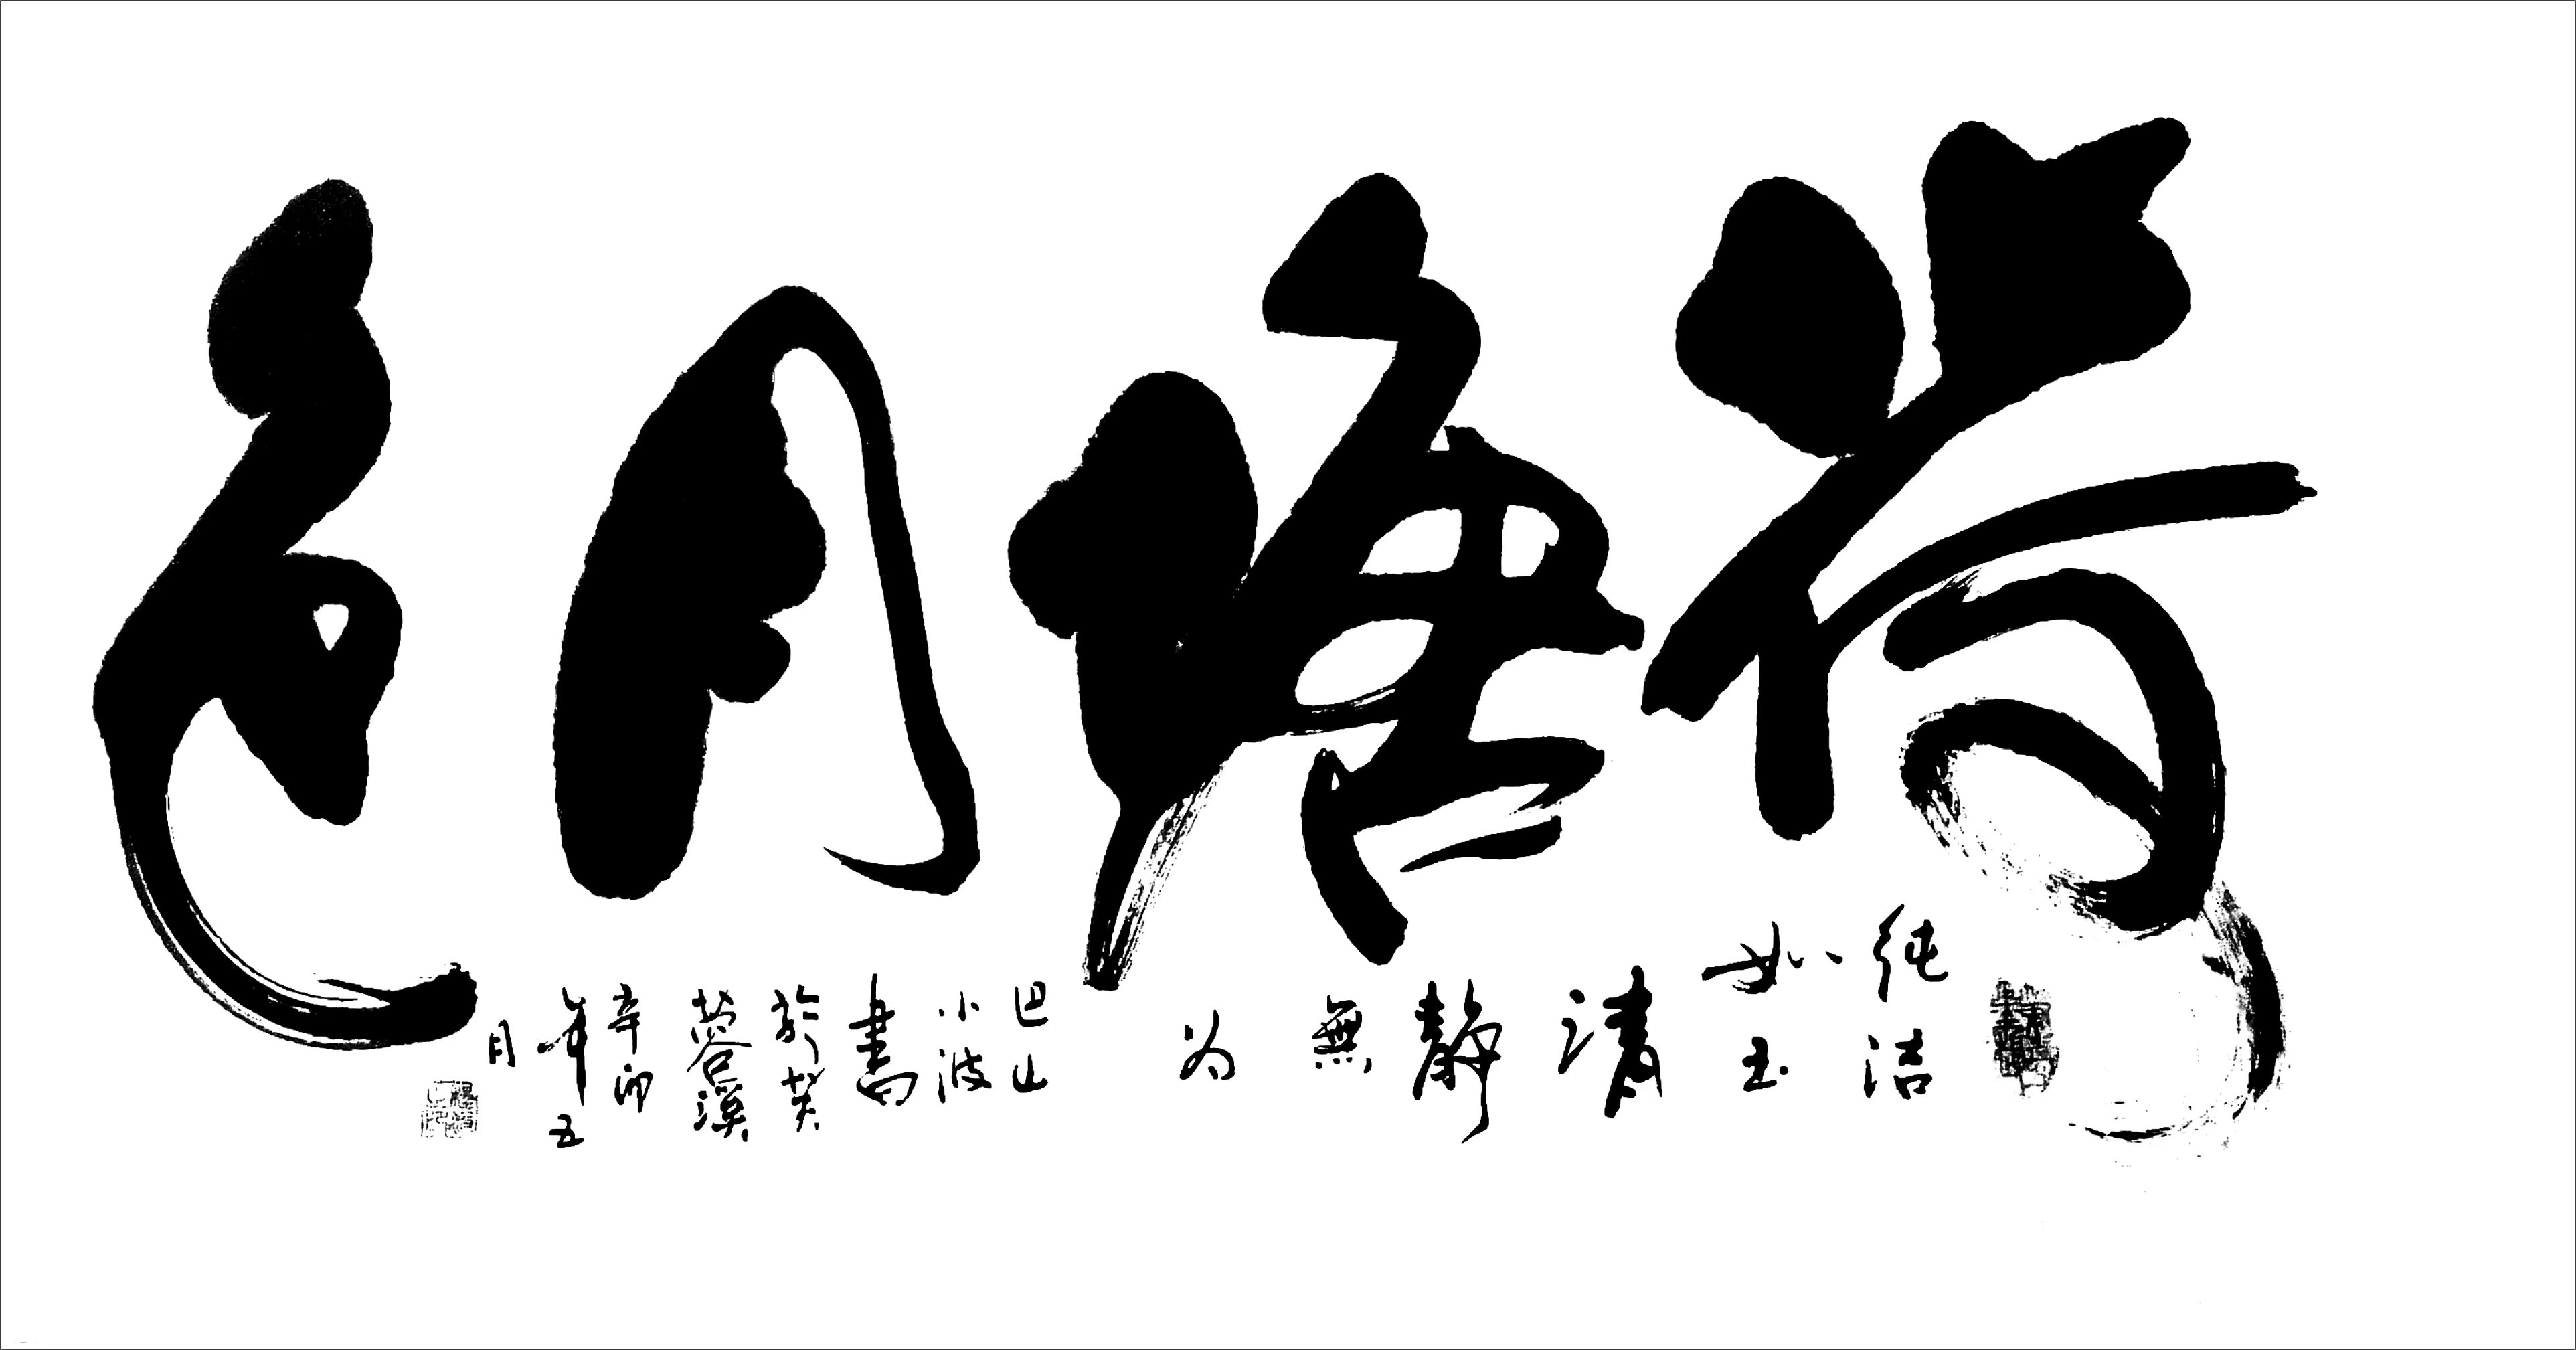 荷塘月色
纯洁
如玉
清
静
無
为
巴山
小波
書
於芙
蓉溪
辛卯
年五
月